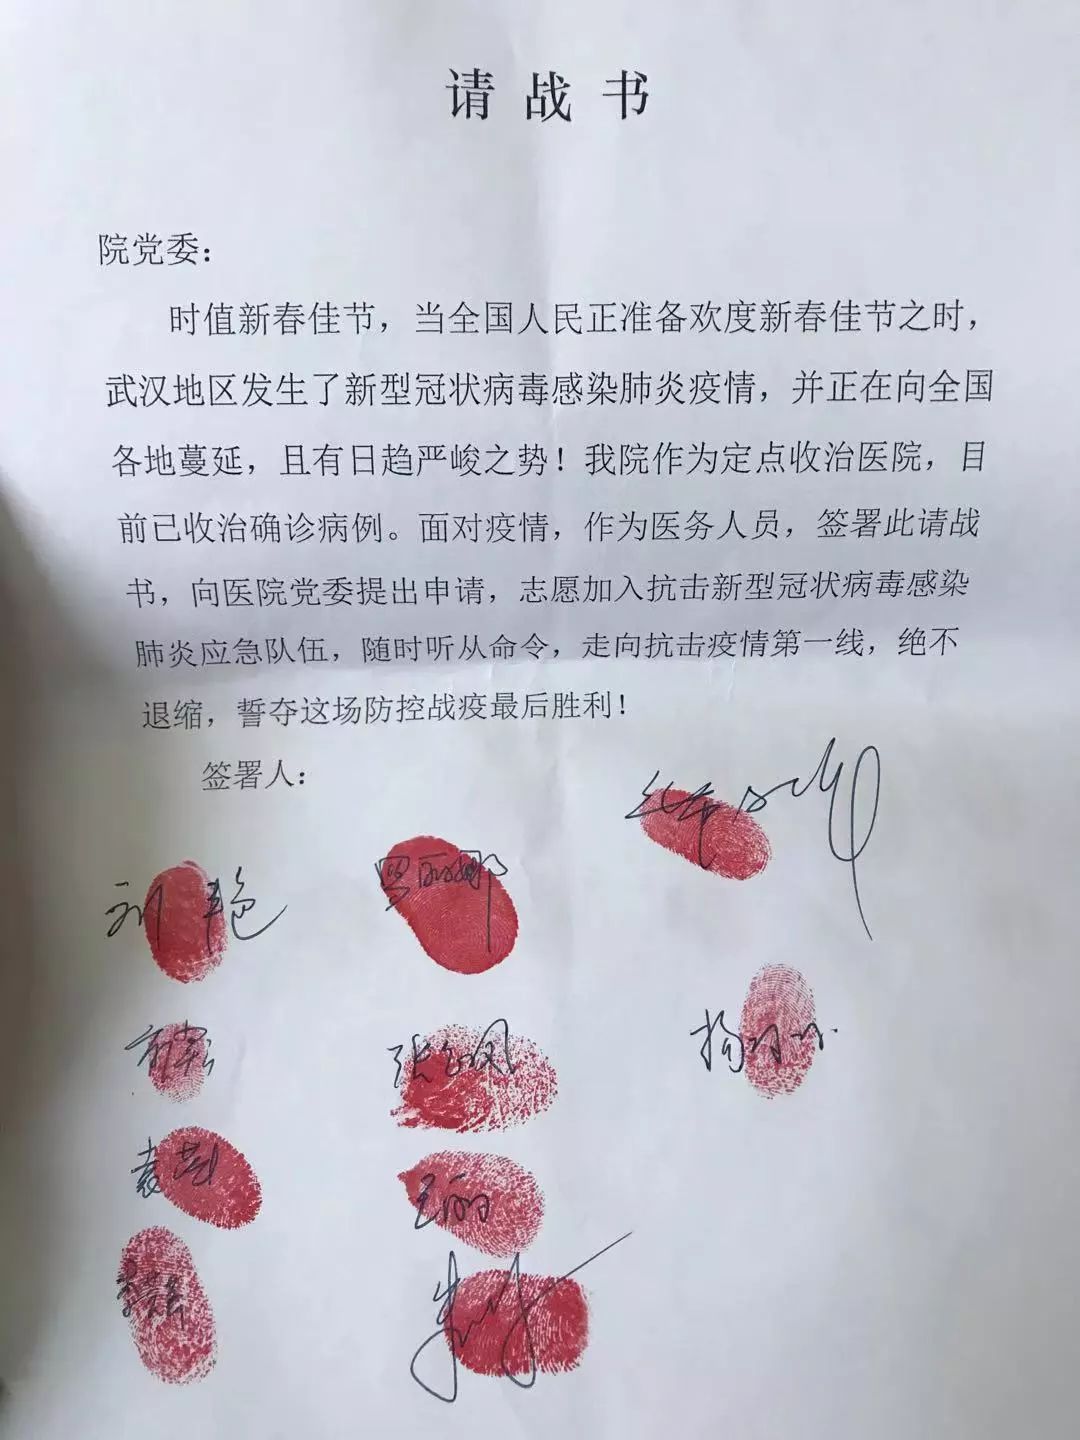 请战书
院党委：
时值新春佳节，当全国人民正准备欢度新春佳节之时，
武汉地区发生了新型冠状病毒感染肺炎疫情，并正在向全国
各地蔓延，且有日趋严峻之势！我院作为定点收治医院，目
前已收治确诊病例。面对疫情，作为医务人员，签署此请战
书，向医院党委提出申请，志愿加入抗击新型冠状病毒感染
肺炎应急队伍，随时听从命令，走向抗击疫情第一线，绝不
退缩，誓夺这场防控战疫最后胜利！
签署人：
刘艳
丽娜
张 凤
杨
袁
王丽